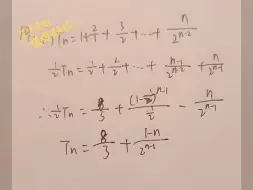 Tn = 1 + 2/1 + 3/2 + ... + n/2^(n-2)
1/2 Tn = 1/2 + 2/2 + ... + (n-1)/2^(n-2) + n/2^(n-1)
∴ 1/2 Tn = 8/3 + (1-1/2)^(n-1)/(1/2) - n/2^(n-1)
Tn = 8/3 + (1-n)/2^(n-1)